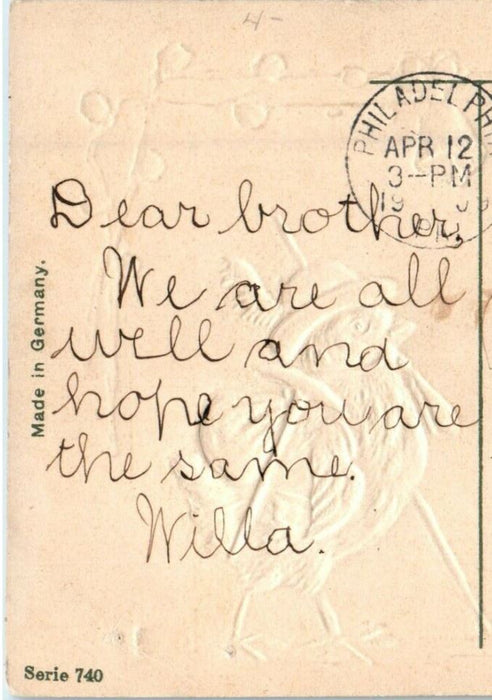 4-
PHILADELPHI
APR 12
3-PM
19 09
Dear brother,
We are all
well and
hope you are
the same.
Willa.
Made in Germany.
Serie 740